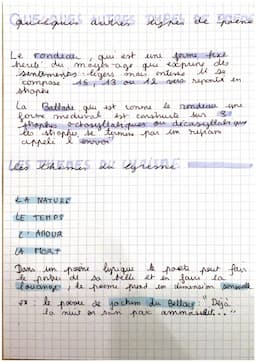 Quelques autres types de poème
Le rondeau, qui est une forme fixe
hérité du moyen age qui exprime des
sentiments légers mais intense il se
compose 15, 13 ou 12 vers repartit en
strophe
La Ballade qui est comme le rondeau une
forme médiéval est construite sur 3
strophes octosyllabiques ou décasyllabiques
les strophe se termine par un refrain
appelé l'envoi
Les thèmes du lyrisme
LA NATURE
LE TEMPS
L'AMOUR
LA MORT
Dans un poème lyrique le poète peut faire
le de sa belle et en faire la
louange, le poème prend une dimension sensuelle
ex: le poème de Joachim du Bellay: "Déjà
la nuit en son parc amassait..."